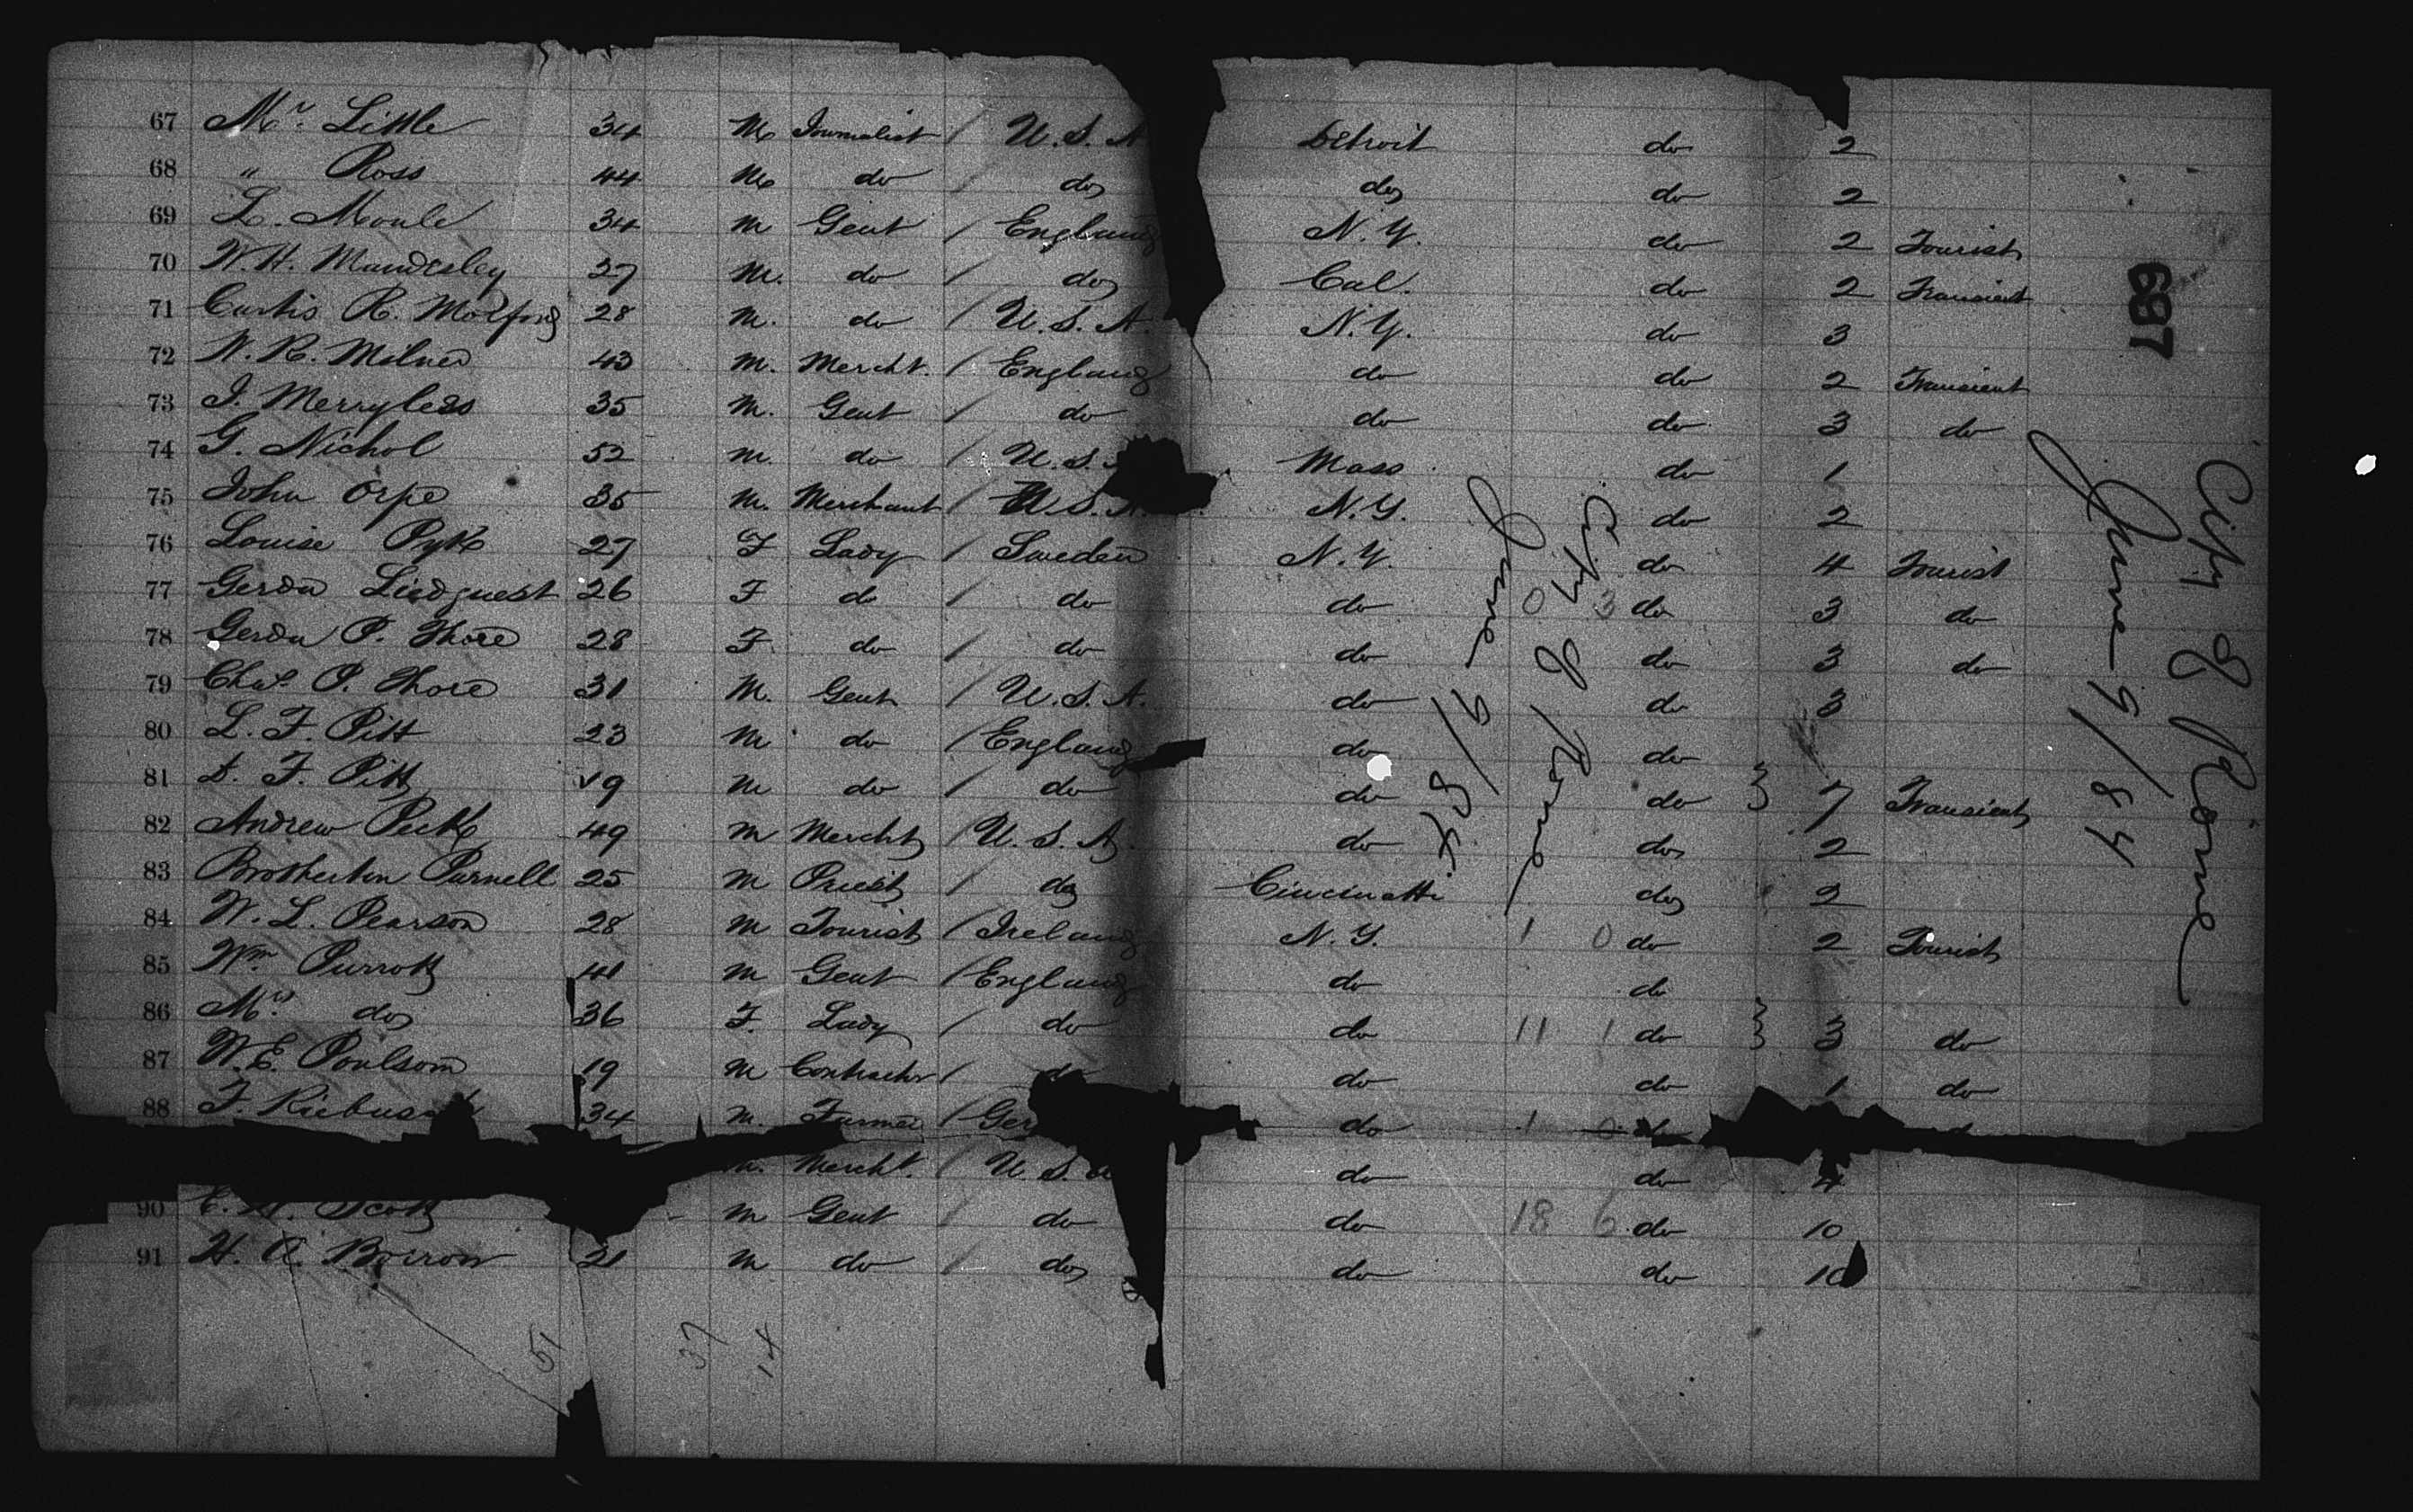 67 Mr. Little 34 M Journalist / U.S.A Detroit do 2
68 " Ross 44 M do / do do do 2
69 L. Moule 34 M Gent / England N.Y. do 2 Tourist
70 W.H. Maudesley 27 M. do / do Cal. do 2 Transient
71 Curtis R. 28 M. do / U.S.A. N.Y. do 3
72 W.R. Milner 43 M. Mercht. / England do do 2 Transient
73 J. Merryless 35 M. Gent / do do do 3 do
74 G. Nichol 52 M. do / U.S. Mass do 1
75 John Orpe 35 M. Merchant / U.S.A. N.Y. do 2
76 Louise Pyk 27 F Lady / Sweden N.Y. do 4 Tourist
77 Gerda Liedquest 26 F do / do do 0 3 do 3 do
78 Gerda P. Thore 28 F. do / do do do 3 do
79 Chas. P. Thore 31 M. Gent / U.S.A. do do 3
80 L.F. Pitt 23 M do / England do do
81 F. Pitt 19 M do / do do do } 7 Transient
82 Andrew Peck 49 M Mercht / U.S.A. do do 2
83 Brotherton Purnell 25 M Priest / do Cincinatti do 2
84 W.L. Pearson 28 M Tourist / Ireland N.Y. 1 0 do 2 Tourist
85 Wm. Purrott 41 M Gent / England do do
86 Mrs. do 36 F. Lady / do do 11 1 do } 3 do
87 W.E. Poulsom 19 M Contractor / do do do 1 do
88 F. 34 M. Farmer / Ger do 1 0 do
M. Mercht. / U.S.A do do 4
90 Scott M Gent / do do 18 6 do 10
91 H.R. 21 M do / do do do 10
51 37 14
City of Rome
June 9/84
697
City of Rome
June 9/84